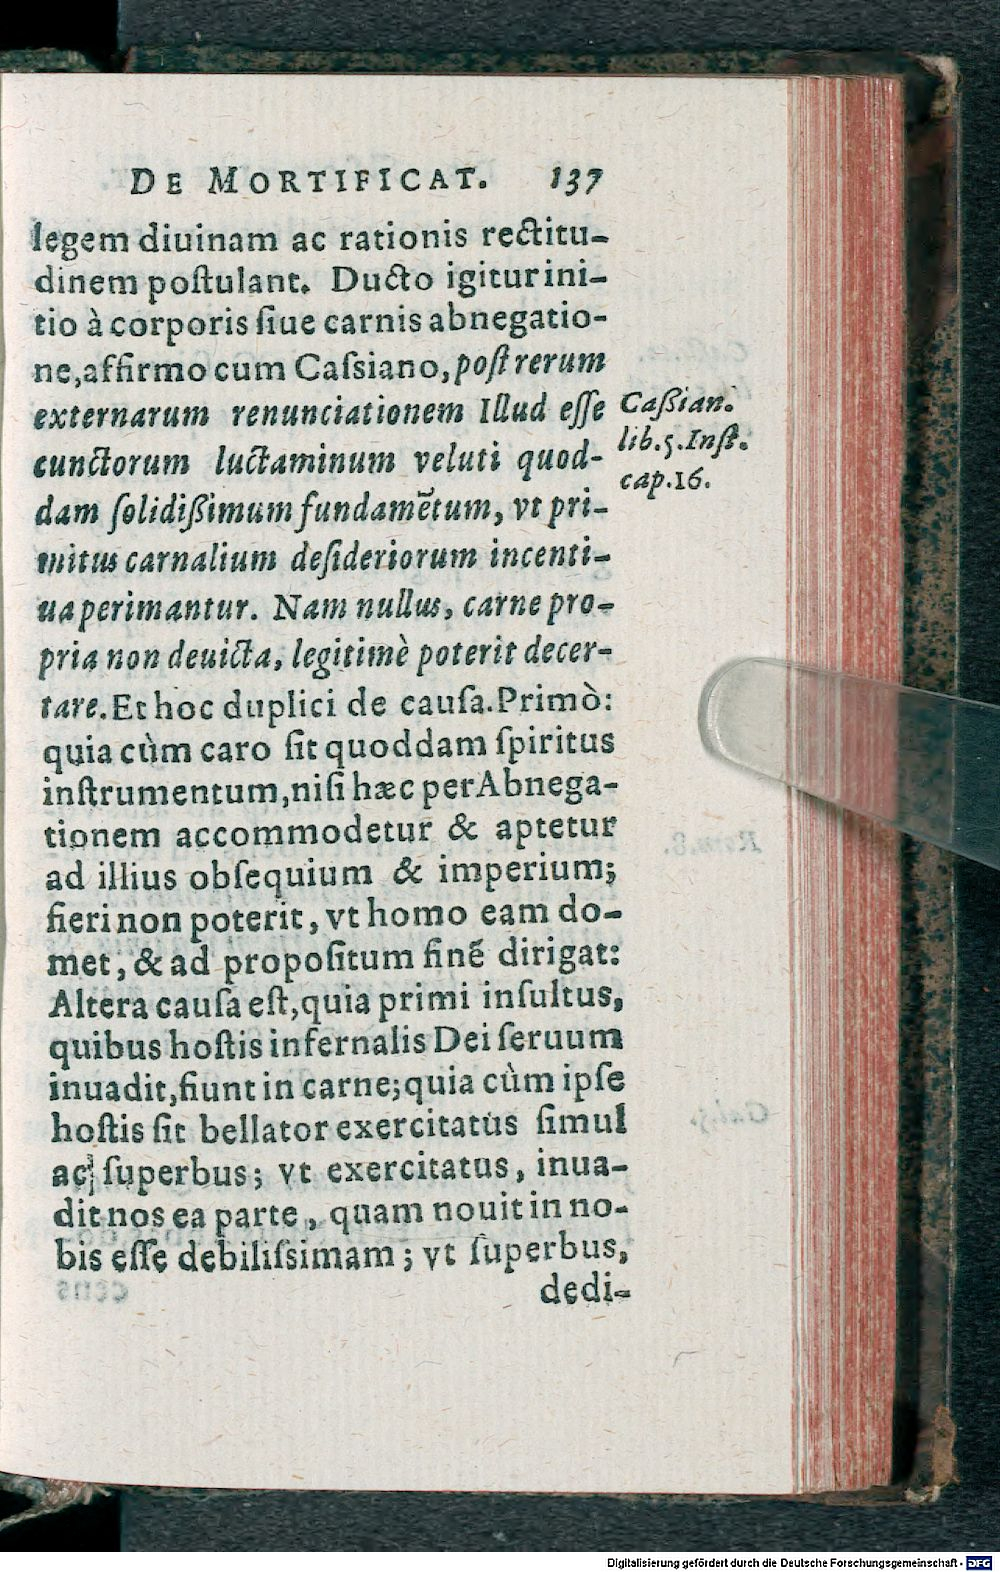 DE MORTIFICAT. 137
legem diuinam ac rationis rectitu-
dinem poſtulant. Ducto igitur ini-
tio à corporis ſiue carnis abnegatio-
ne, affirmo cum Caſsiano, poſt rerum
externarum renunciationem Illud eſſe
cunctorum luctaminum veluti quod-
dam ſolidißimum fundamẽtum, vt pri-
mitus carnalium deſideriorum incenti-
ua perimantur. Nam nullus, carne pro-
pria non deuicta, legitimè poterit decer-
tare. Et hoc duplici de cauſa. Primò:
quia cùm caro ſit quoddam ſpiritus
inſtrumentum, niſi hæc per Abnega-
tionem accommodetur & aptetur
ad illius obſequium & imperium;
fieri non poterit, vt homo eam do-
met, & ad propoſitum finẽ dirigat:
Altera cauſa eſt, quia primi inſultus,
quibus hoſtis infernalis Dei ſeruum
inuadit, fiunt in carne; quia cùm ipſe
hoſtis ſit bellator exercitatus ſimul
ac ſuperbus; vt exercitatus, inua-
dit nos ea parte, quam nouit in no-
bis eſſe debiliſsimam; vt ſuperbus,
dedi-
Caßian.
lib.5.Inſt.
cap.16.
Digitalisierung gefördert durch die Deutsche Forschungsgemeinschaft - DFG